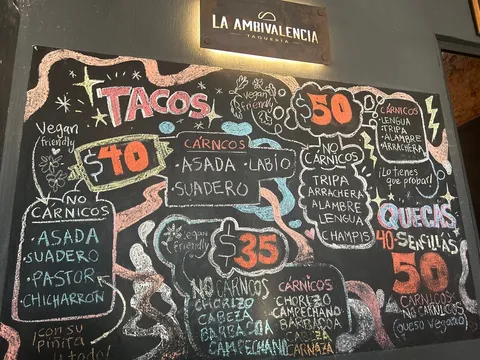 LA AMBIVALENCIA
TAQUERÍA
TACOS
Vegan
friendly
$40
NO
CÁRNICOS
• ASADA
SUADERO
• PASTOR
CHICHARRÓN
¡con su
piñita
y todo!
CÁRNICOS
• ASADA • LABIO
SUADERO •
vegan
friendly
$50
NO
CÁRNICOS
TRIPA
ARRACHERA
ALAMBRE
LENGUA
• CHAMPIS
CÁRNICOS
• LENGUA
• TRIPA
• ALAMBRE
• ARRACHERA
¡Lo tienes
que probar!
vegan
friendly
$35
NO CÁRNICOS
CHORIZO
CABEZA
BARBACOA
CAMPECHANO
CÁRNICOS
CHORIZO
CAMPECHANO
BARBACOA
CARNAZA
QUECAS
40 - SENCILLAS
50
CÁRNICOS
NO CÁRNICOS
(queso vegano)